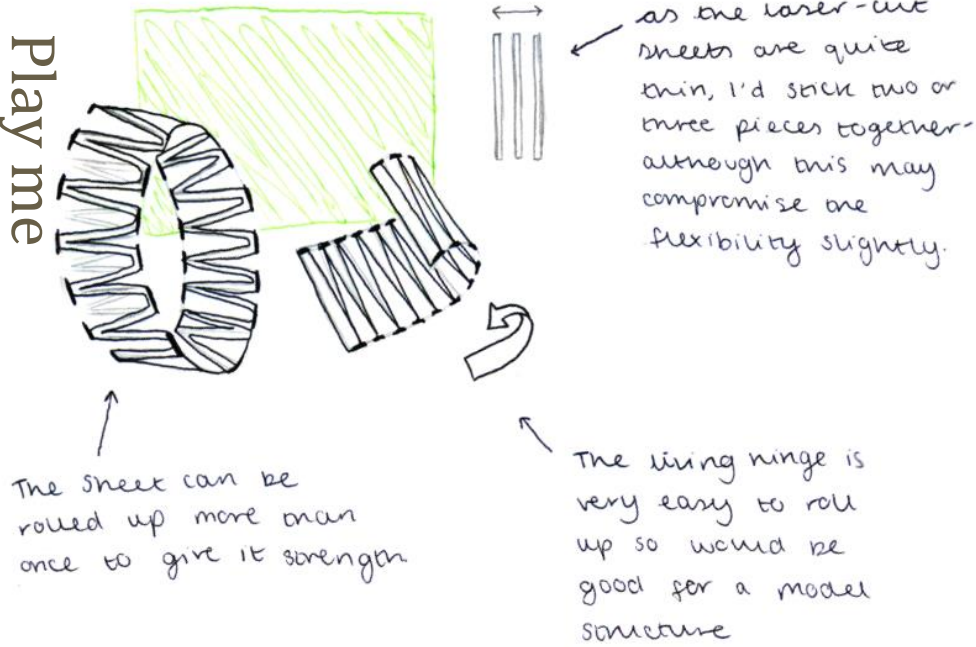 Play me
as the laser-cut
sheets are quite
thin, I'd stick two or
three pieces together-
although this may
compromise the
flexibility slightly.
The sheet can be
rolled up more than
once to give it strength.
The living hinge is
very easy to roll
up so would be
good for a model
structure